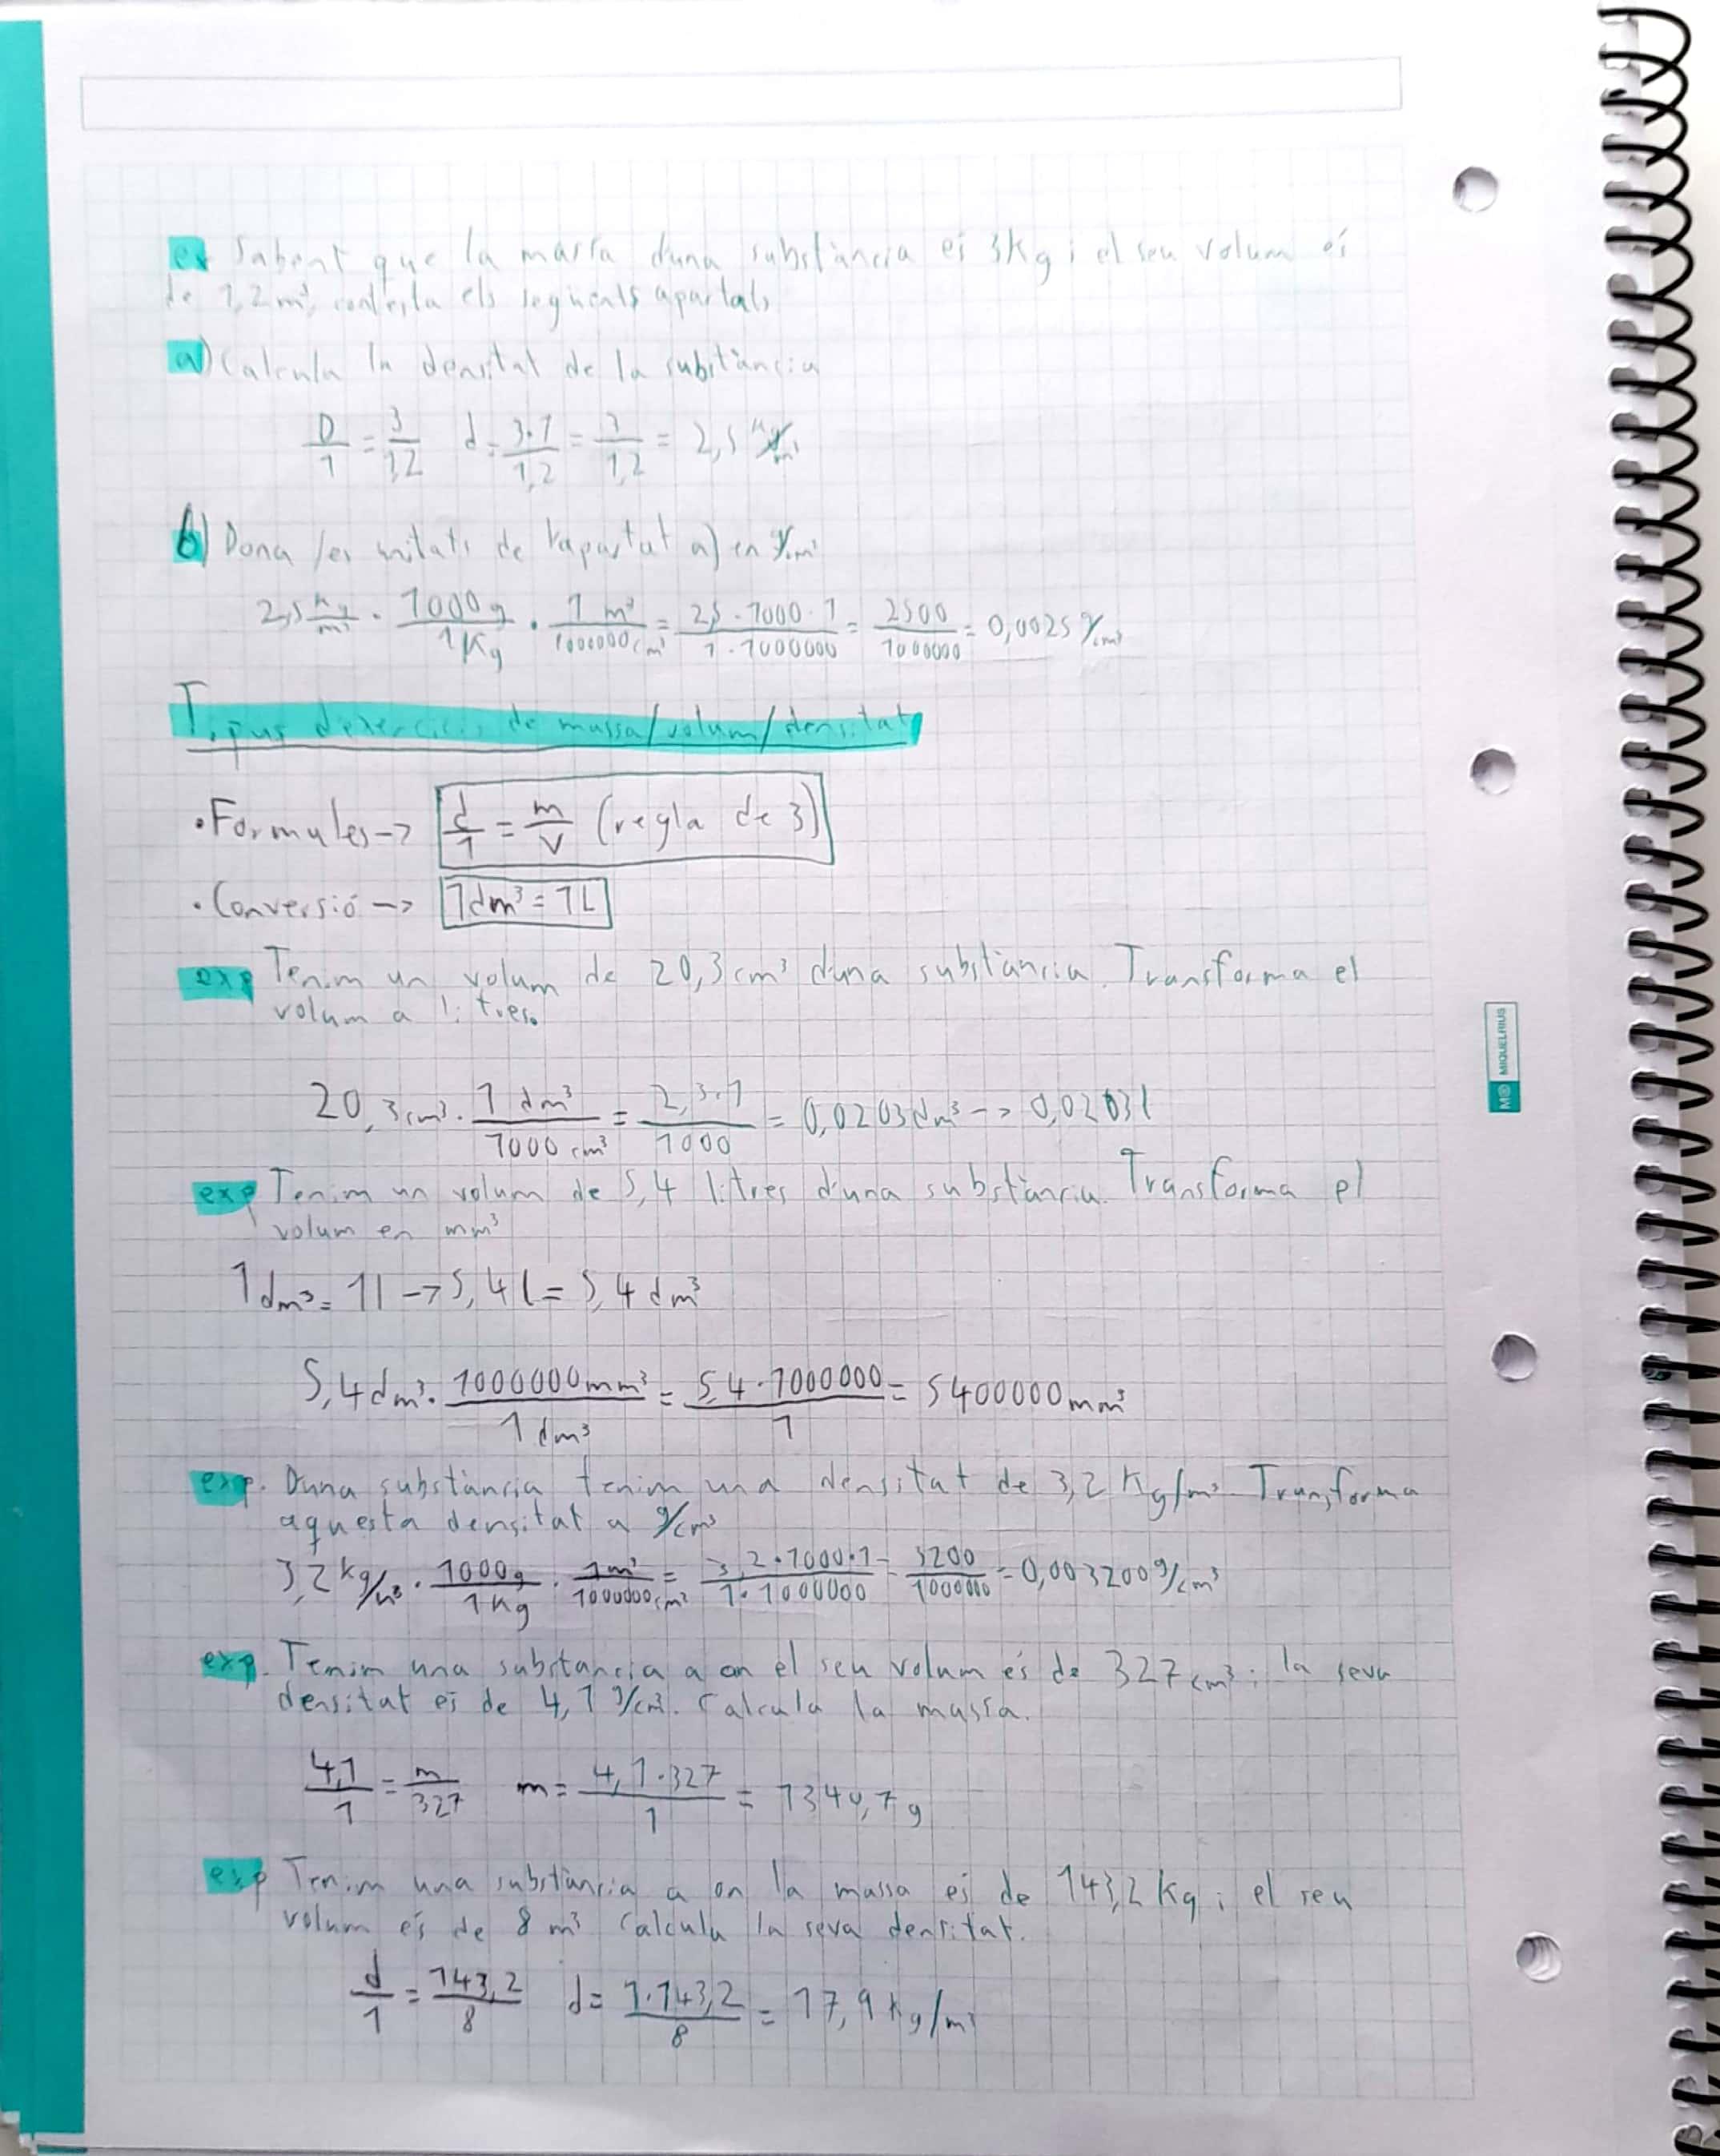 ex Sabent que la massa duna substància és 3Kg i el seu volum és
de 1,2m³, contesta els següents apartats
a) Calcula la densitat de la substància
D/1 = 3/1,2 d = 3·1/1,2 = 3/1,2 = 2,5 Kg/m³
b) Dona les unitats de l'apartat a) en g/cm³
2,5 Kg/m³ · 1000g/1Kg · 1 m³/1000000cm³ = 2,5·1000·1/1·1000000 = 2500/1000000 = 0,0025 g/cm³
Tipus d'exercicis de massa/volum/densitat
• Formules -> d/1 = m/v (regla de 3)
• Conversió -> 1dm³ = 1L
exp Tenim un volum de 20,3cm³ duna substància. Transforma el
volum a litres.
20,3cm³ · 1 dm³/1000 cm³ = 2,3·1/1000 = 0,0203dm³ -> 0,0203l
exp Tenim un volum de 5,4 litres d'una substància. Transforma el
volum en mm³
1dm³ = 1l -> 5,4l = 5,4dm³
5,4dm³ · 1000000mm³/1dm³ = 5,4·1000000/1 = 5400000mm³
exp. Duna substància tenim una densitat de 3,2 Kg/m³ Transforma
aquesta densitat a g/cm³
3,2kg/m³ · 1000g/1Kg · 1m³/1000000cm³ = 3,2·1000·1/1·1000000 = 3200/1000000 = 0,003200g/cm³
exp. Tenim una substancia a on el seu volum és de 327cm³ i la seva
densitat és de 4,1g/cm³. Calcula la massa.
4,1/1 = m/327 m = 4,1·327/1 = 1340,7g
exp Tenim una substància a on la massa és de 143,2Kg i el seu
volum és de 8 m³ Calcula la seva densitat.
d/1 = 143,2/8 d = 1·143,2/8 = 17,9Kg/m³
MIQUELRIUS